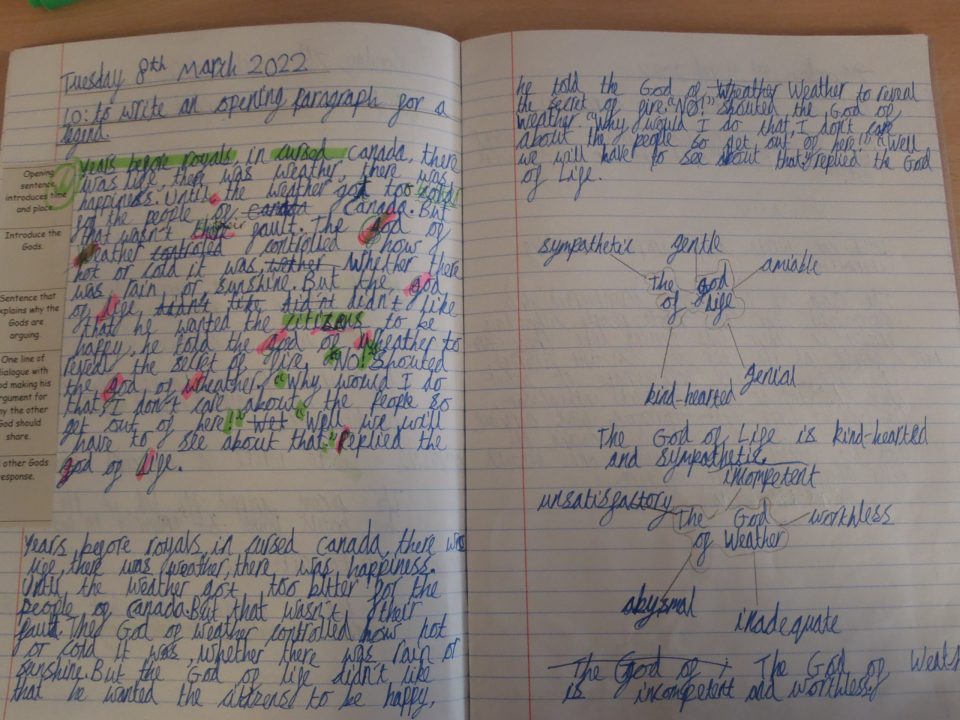 Tuesday 8th March 2022
LO: to write an opening paragraph for a
legend.
Opening
sentence
introduces time
and place.
Introduce the
Gods.
Sentence that
explains why the
Gods are
arguing.
One line of
dialogue with
God making his
argument for
why the other
God should
share.
other Gods
response.
Years before royals, in cursed Canada, there
was life, there was weather, there was
happiness. Until, the weather got too
for the people of Canada Canada. But
that wasn't their fault. The God of
Weather controled controlled how
hot or cold it was, wether whether there
was rain or sunshine. But the God
of life didn't like didn't didn't like
that he wanted the citizens to be
happy, he told the God of Wheather to
reveal the secret of fire. "No!" Shouted
the God of Weather. "Why would I do
that, I don't care about the people so
get out of here!" Wet "Well we will
have to see about that" replied the
god of life.
Years before royals, in cursed Canada, there was
life, there was weather, there was happiness.
Until the weather got too bitter for the
people of Canada. But that wasn't their
fault. The God of weather controlled how hot
or cold it was, whether there was rain or
sunshine. But the God of life didn't like
that he wanted the citizens to be happy,
he told the God of Wheather Weather to reveal
the secret of fire "No!" shouted the God of
Weather "Why would I do that, I don't care
about the people so get out of here!" "Well
we will have to see about that" replied the God
of Life.
sympathetic gentle
amiable
The God
of Life
genial
kind-hearted
The God of Life is kind-hearted
and sympathetic.
incompetent
unsatisfactory
The God
workhless
of Weather
abysmal
inadequate
The God of The God of Weath
is incompetent and workhless